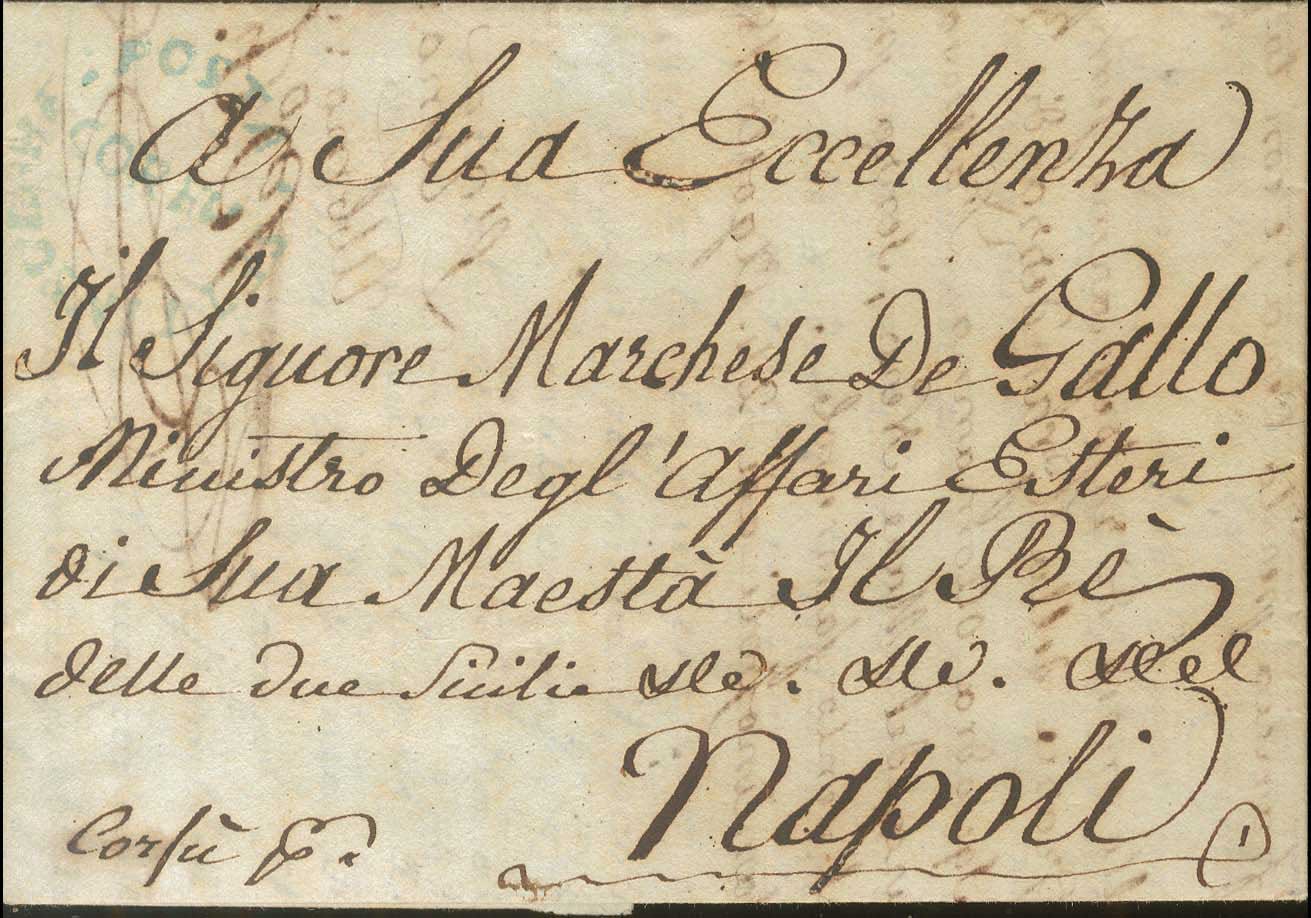 A Sua Eccellenza
Il Signore Marchese De Gallo
Ministro Degl' Affari Esteri
di Sua Maestà Il Rè
delle due Sicilie
Napoli
Corfù